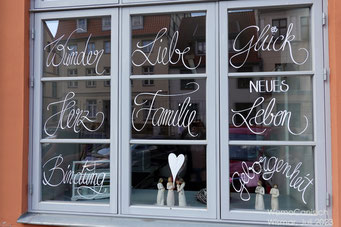 Wunder Liebe Glück
Herz Familie NEUES Leben
Bindung geborgenheit